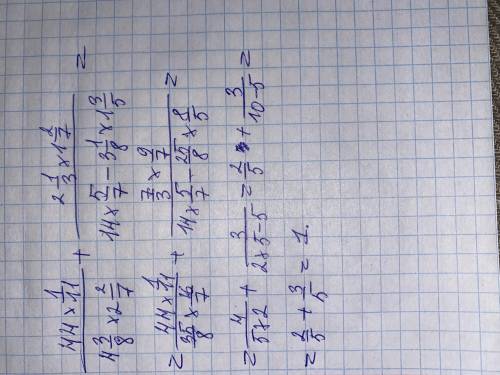 (44 × 1/11)/(4 3/8 × 2 2/7) + (2 1/3 × 1 2/7)/(14 × 5/7 − 3 1/8 × 1 3/5) =
= (44 × 1/11)/(35/8 × 16/7) + (7/3 × 9/7)/(14 × 5/7 − 25/8 × 8/5) =
= 4/(5×2) + 3/(2×5−5) = 2/5 + 3/(10−5) =
= 2/5 + 3/5 = 1.